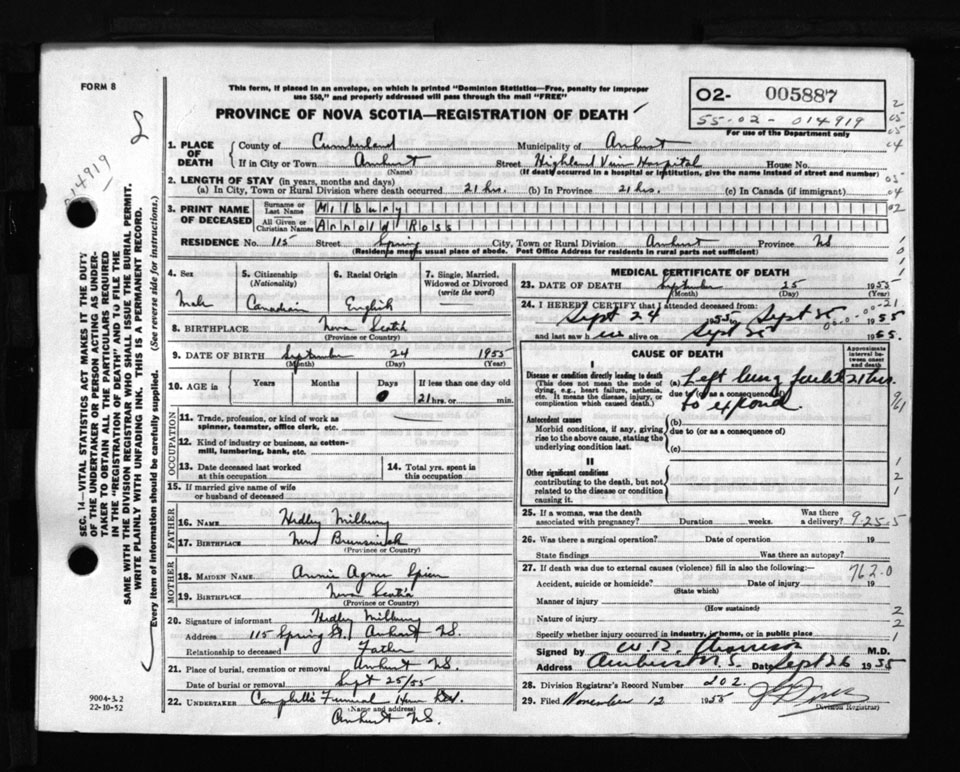 FORM 8
This form, if placed in an envelope, on which is printed "Dominion Statistics—Free, penalty for improper
use $50," and properly addressed will pass through the mail "FREE"
PROVINCE OF NOVA SCOTIA—REGISTRATION OF DEATH
O2- 005887
55-02-014919
For use of the Department only
014919
1. PLACE OF DEATH
County of Cumberland Municipality of Amherst
If in City or Town Amherst Street Highland View Hospital House No.
(Name) (If death occurred in a hospital or institution, give the name instead of street and number)
2. LENGTH OF STAY (in years, months and days)
(a) In City, Town or Rural Division where death occurred 21 hrs. (b) In Province 21 hrs. (c) In Canada (if immigrant)
3. PRINT NAME OF DECEASED
Surname or Last Name Milbury
All Given or Christian Names Arnold Ross
RESIDENCE No. 115 Street Spring City, Town or Rural Division Amherst Province NS
(Residence means usual place of abode. Post Office Address for residents in rural parts not sufficient)
4. Sex Male
5. Citizenship (Nationality) Canadian
6. Racial Origin English
7. Single, Married, Widowed or Divorced (write the word)
8. BIRTHPLACE Nova Scotia
(Province or Country)
9. DATE OF BIRTH September 24 1955
(Month) (Day) (Year)
10. AGE in Years Months Days 0 If less than one day old 21 hrs. or min.
OCCUPATION
11. Trade, profession, or kind of work as spinner, teamster, office clerk, etc.
12. Kind of industry or business, as cotton-mill, lumbering, bank, etc.
13. Date deceased last worked at this occupation
14. Total yrs. spent in this occupation
15. If married give name of wife or husband of deceased
FATHER
16. NAME Hedley Milbury
17. BIRTHPLACE New Brunswick
(Province or Country)
MOTHER
18. MAIDEN NAME Annie Agnes
19. BIRTHPLACE Nova Scotia
(Province or Country)
20. Signature of informant Hedley Milbury
Address 115 Spring St., Amherst N.S.
Relationship to deceased Father
21. Place of burial, cremation or removal Amherst N.S.
Date of burial or removal Sept 25/55
22. UNDERTAKER Campbell's Funeral
(Name and address)
Amherst N.S.
MEDICAL CERTIFICATE OF DEATH
23. DATE OF DEATH September 25 1955
(Month) (Day) (Year)
24. I HEREBY CERTIFY that I attended deceased from:
Sept 24 1955 to Sept 25 1955
and last saw h alive on Sept 25 1955.
CAUSE OF DEATH
Approximate interval between onset and death
I
Disease or condition directly leading to death
(This does not mean the mode of dying, e.g., heart failure, asthenia, etc. It means the disease, injury, or complication which caused death.)
(a) Left lung failed 21 hrs.
due to (or as a consequence of)
to expand
Antecedent causes
Morbid conditions, if any, giving rise to the above cause, stating the underlying condition last.
(b)
due to (or as a consequence of)
(c)
II
Other significant conditions
contributing to the death, but not related to the disease or condition causing it.
25. If a woman, was the death associated with pregnancy? Duration weeks. Was there a delivery?
9.25.5
26. Was there a surgical operation? Date of operation 19
State findings Was there an autopsy?
27. If death was due to external causes (violence) fill in also the following:
762.0
Accident, suicide or homicide? Date of injury 19
(State which)
Manner of injury
(How sustained)
Nature of injury
Specify whether injury occurred in industry, in home, or in public place
Signed by M.D.
Address Amherst N.S. Date Sept 26 1955
28. Division Registrar's Record Number 202.
29. Filed November 12 1955
Division Registrar)
SEC. 14—VITAL STATISTICS ACT MAKES IT THE DUTY
OF THE UNDERTAKER OR PERSON ACTING AS UNDER-
TAKER TO OBTAIN ALL THE PARTICULARS REQUIRED
IN THE "REGISTRATION OF DEATH" AND TO FILE THE
SAME WITH THE DIVISION REGISTRAR WHO SHALL ISSUE THE BURIAL PERMIT.
WRITE PLAINLY WITH UNFADING INK. THIS IS A PERMANENT RECORD.
Every item of information should be carefully supplied. (See reverse side for instructions.)
9004-3.2
22-10-52